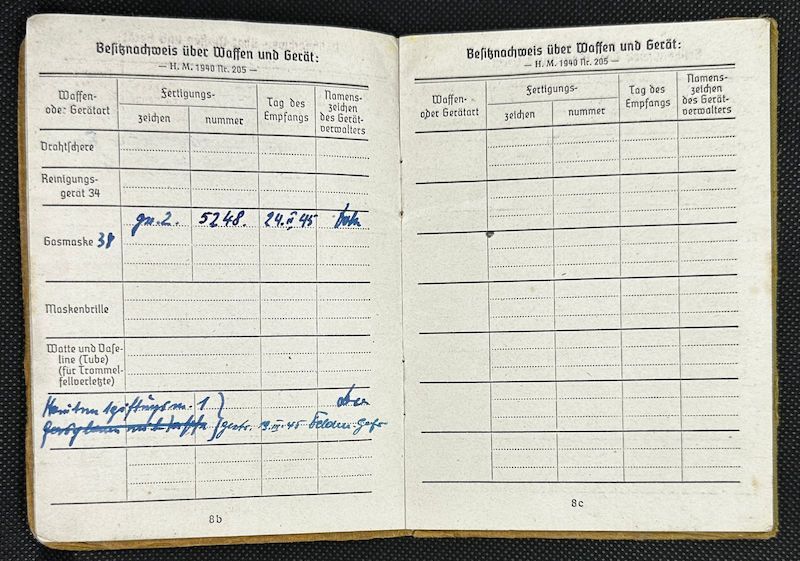 Besitznachweis über Waffen und Gerät:
— H. M. 1940 Nr. 205 —
Waffen- oder Gerätart
Fertigungs-
zeichen
nummer
Tag des Empfangs
Namens-zeichen des Gerät-verwalters
Drahtschere
Reinigungs-
gerät 34
5248. 24. II. 45
Gasmaske 38
Maskenbrille
Watte und Vase-
line (Tube)
(für Trommel-
fellverletzte)
1
gestr. 19. III. 45
8b
Besitznachweis über Waffen und Gerät:
— H. M. 1940 Nr. 205 —
Waffen- oder Gerätart
Fertigungs-
zeichen
nummer
Tag des Empfangs
Namens-zeichen des Gerät-verwalters
8c